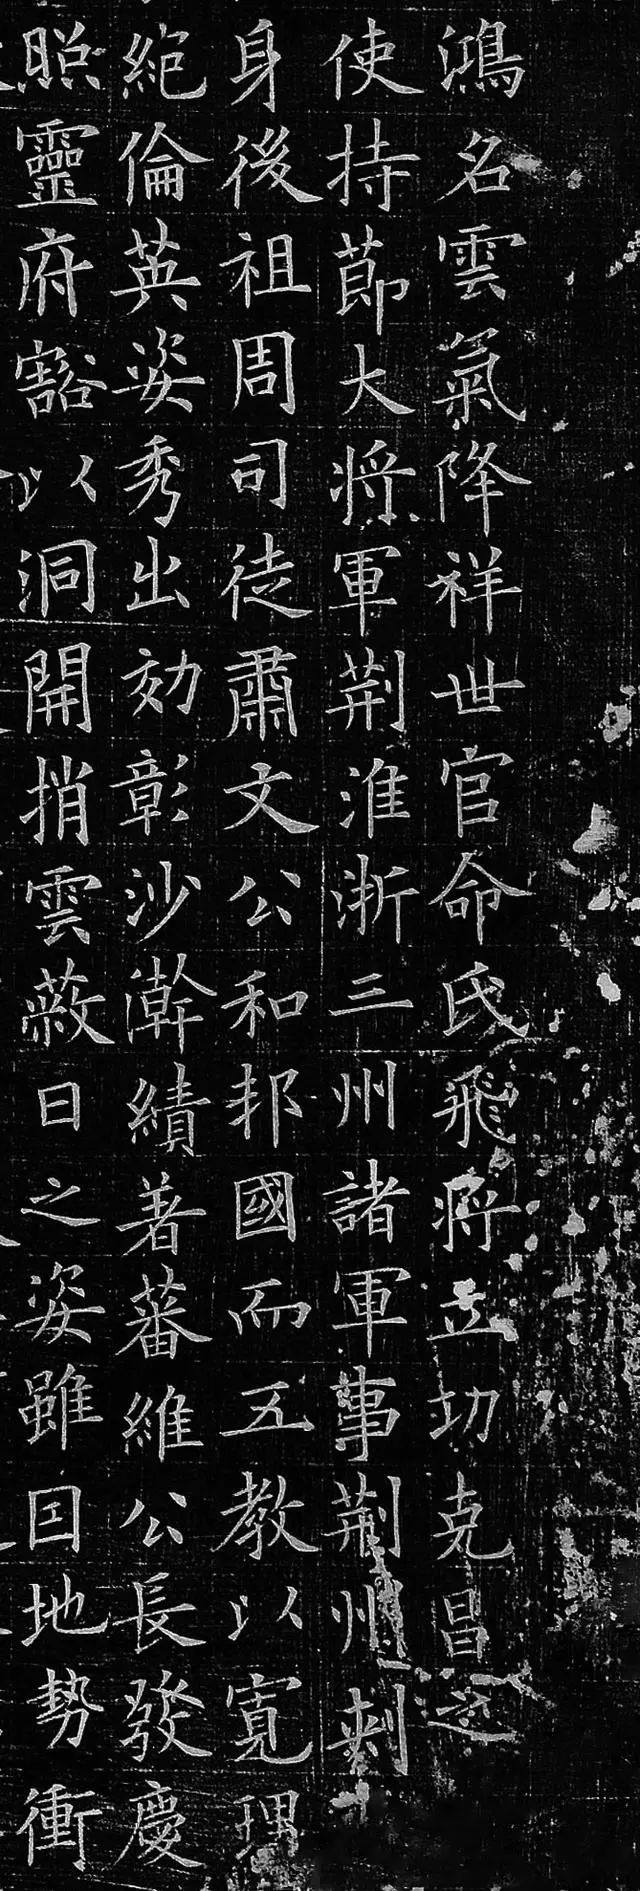 鴻名雲氣降祥世官命氏飛将立功克昌之
使持節大将軍荆淮浙三州諸軍事荆州刺
身後祖周司徒肅文公和邦國而五教以寛理
絶倫英姿秀出効彰沙漠績著蕃維公長發慶
照靈府豁以洞開捎雲蔽日之姿雖因地勢衝